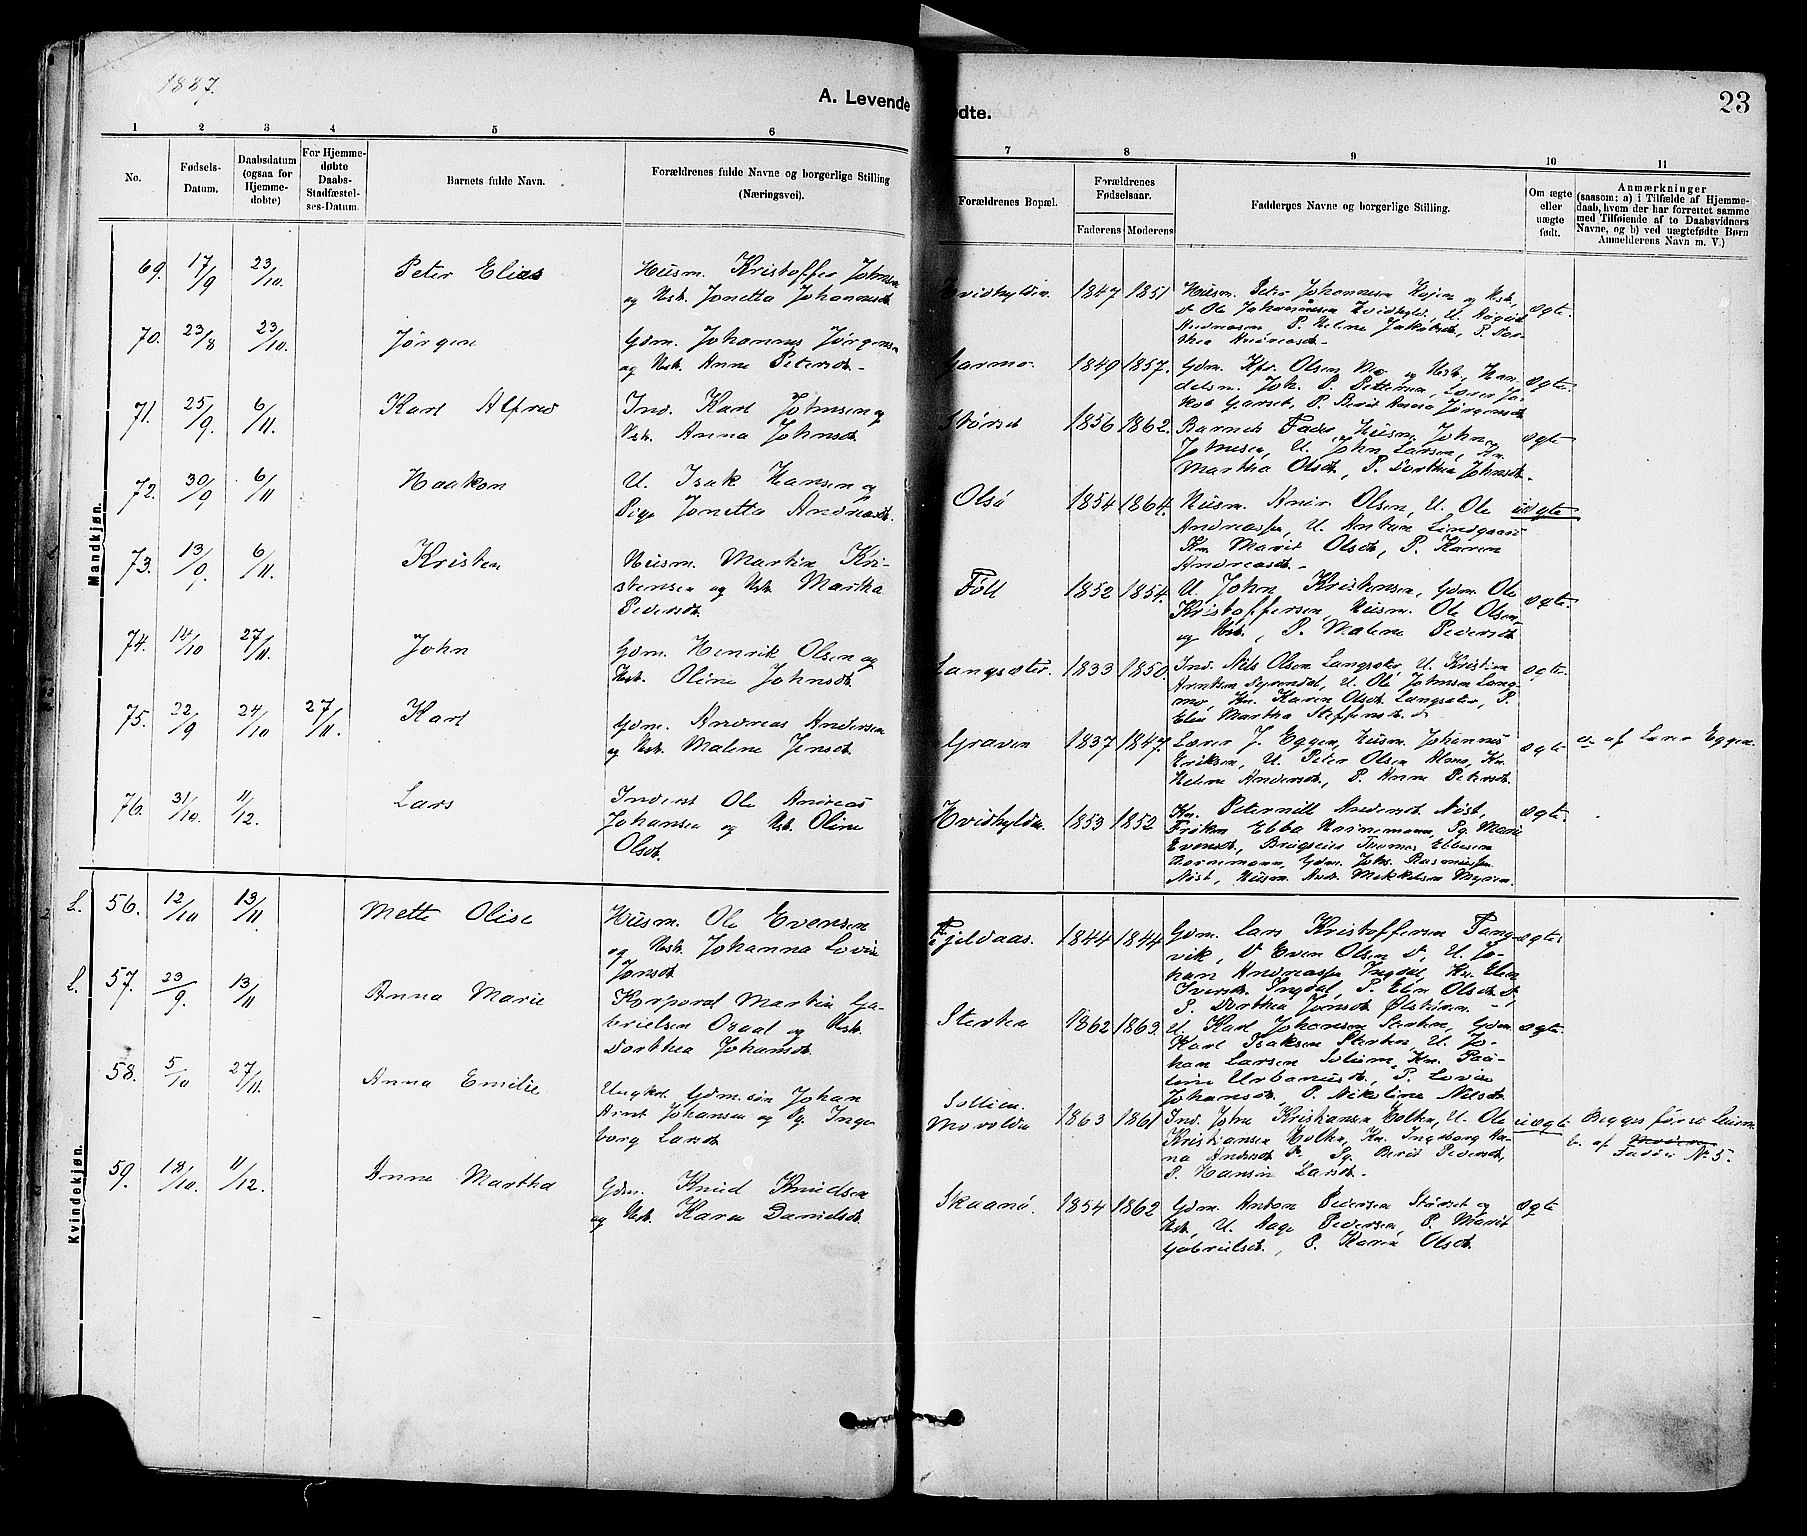 1887.
A. Levende
ødte.
23
1 2 3 4 5 6
7 8 9 10 11
No.
Fødsels-
Datum.
Daabsdatum
(ogsaa for
Hjemme-
døbte)
For Hjemme-
døbte
Daabs-
Stadfæstel-
ses-Datum.
Barnets fulde Navn.
Forældrenes fulde Navne og borgerlige Stilling
(Næringsvei).
Forældrenes Bopæl.
Forældrenes
Fødselsaar.
Faderens
Moderens
Faddernes Navne og borgerlige Stilling.
Om ægte
eller
uægte
født.
Anmærkninger
(saasom: a) i Tilfælde af Hjemme-
daab, hvem der har forrettet samme
med Tilføiende af to Daabsvidners
Navne, og b) ved uægtefødte Børn
Anmelderens Navn m. V.)
Mandkjøn.
69. 17/9 23/10. Peter Elias
Husm. Kristoffer Johnsen
og Hst. Jonetta Johannesdt.
Hvidhyldin. 1847 1851
Husm. Peter Johannesen og Hst.,
Ole Johannesen Hvidhyld., U.
Andreasen P. Helene Jakobsdt., P. Dor-
thea Andreasdt.
ægte.
70. 23/8 23/10. Jørgen
Gdm. Johannes Jørgensen
og Hst. Anne Petersdt.
Garmo. 1849 1857.
Gdm. Kpr. Olsen Mo og Hst., Han-
delsm. Joh. P. Pettersen, Lærer Ja-
kob Garset, P. Berit Anna Jørgensdt.
ægte.
71. 25/9. 6/11. Karl Alfred
Ind. Karl Johnsen og
Hst. Anna Johnsdt.
Størset 1856 1862.
Barnets Fader, Husm. John
Johnsen, U. John Larsen, Kn.
Martha Olsdt., P. Dorthea Johnsdt.
ægte
72. 30/9 6/11 Haakon
U. Isak Hansen og
Pige Jonetta Andreasdt.
Olsø 1854 1864.
Husm. Anders Olsen, U. Ole
Andreassen, U. Anton Lindgaard
Kn. Marit Olsdt., P. Karen
Andreasdt.
uægte
73. 13/9. 6/11. Kristen
Husm. Martin Kri-
stensen og Hst. Martha
Pedersdt.
Föll 1852 1854.
U. John Kristensen, Gdm. Ole
Kristoffersen, Husm. Ole Olsen,
og Hst., P. Malene Pedersdt.
ægte.
74. 14/10 27/11. John
Gdm. Henrik Olsen og
Hst. Oline Johnsdt.
Langsæter. 1833 1850.
Ind. Nils Olsen Langsæter, U. Kristian
Arntsen, U. Ole Johnsen Lang-
mo, Kn. Karen Olsdt. Langsæter, P.
Elen Martha Steffensdt.
ægte.
75. 22/9 24/10 27/11. Karl
Gdm. Andreas Andersen
og Hst. Malene Jensdt.
Graven 1837 1847.
Lærer J. Eggen, Husm. Johannes
Eriksen, U. Peter Olsen Almo, Kn.
Helene Andersdt., P. Anne Petersdt.
ægte a. af Lærer Eggen.
76. 31/10. 11/12. Lars
Inderst Ole Andreas
Johansen og Hst. Oline
Olsdt.
Hvidhyldin. 1853 1852
Kn. Peternille Andersdt. Nöst,
Frøken Ebba Hornemann, Pg. Marie
Evensdt., Brugseier Thomas Ebbesen
Hornemann, Gdm. Johs. Rasmussen
Nöst, Husm. Andr. Mikkelsen Myren.
ægte.
Kvindekjøn.
L. 56. 12/10 13/11. Mette Olise
Husm. Ole Evensen
og Hst. Johanna Lovise
Jonsdt.
Fjeldaas. 1844 1844
Gdm. Lars Kristoffersen Tang-
vik, Even Olsen, U. Jo-
han Andreassen Ingdal, Kn. Elen
Iversdt. Ingdal, P. Elen Olsdt.,
P. Dorthea Jonsdt. Ølstören.
ægte
L. 57. 23/9. 13/11 Anna Marie
Korporal Martin Ga-
brielsen Opaal og Hst.
Dorthea Johansdt.
Sterten 1862 1863.
U. Karl Johansen Sterten, Gdm.
Karl Isaksen Sterten, U. Jo-
han Larsen Solium, Kn. Pau-
line Urbanusdt., P. Lovise
Johansdt., P. Nikoline Nilsdt.
ægte.
58. 5/10 27/11. Anna Emilie
Ungkarl Gdm.søn Johan
Arnt Johansen og Pg. Inge-
borg Larsdt.
Sollien.
Movoldin 1863 1861
Ind. John Kristiansen Holten, U. Ole
Kristiansen Holten, Kn. Ingeborg An-
na Andersdt., Pg. Berit Pedersdt.,
P. Hansine Larsdt.
uægte Begges første Leierm.
b. af
Fadder No 5.
59. 18/10. 11/12. Anne Martha
Gdm. Knud Knudsen
og Hst. Karen Danielsdt.
Skaanö. 1854 1862
Gdm. Anton Pedersen Størset og
Hst., U. Aage Pedersen, P. Marit
Gabrielsdt., P. Karen Olsdt.
ægte